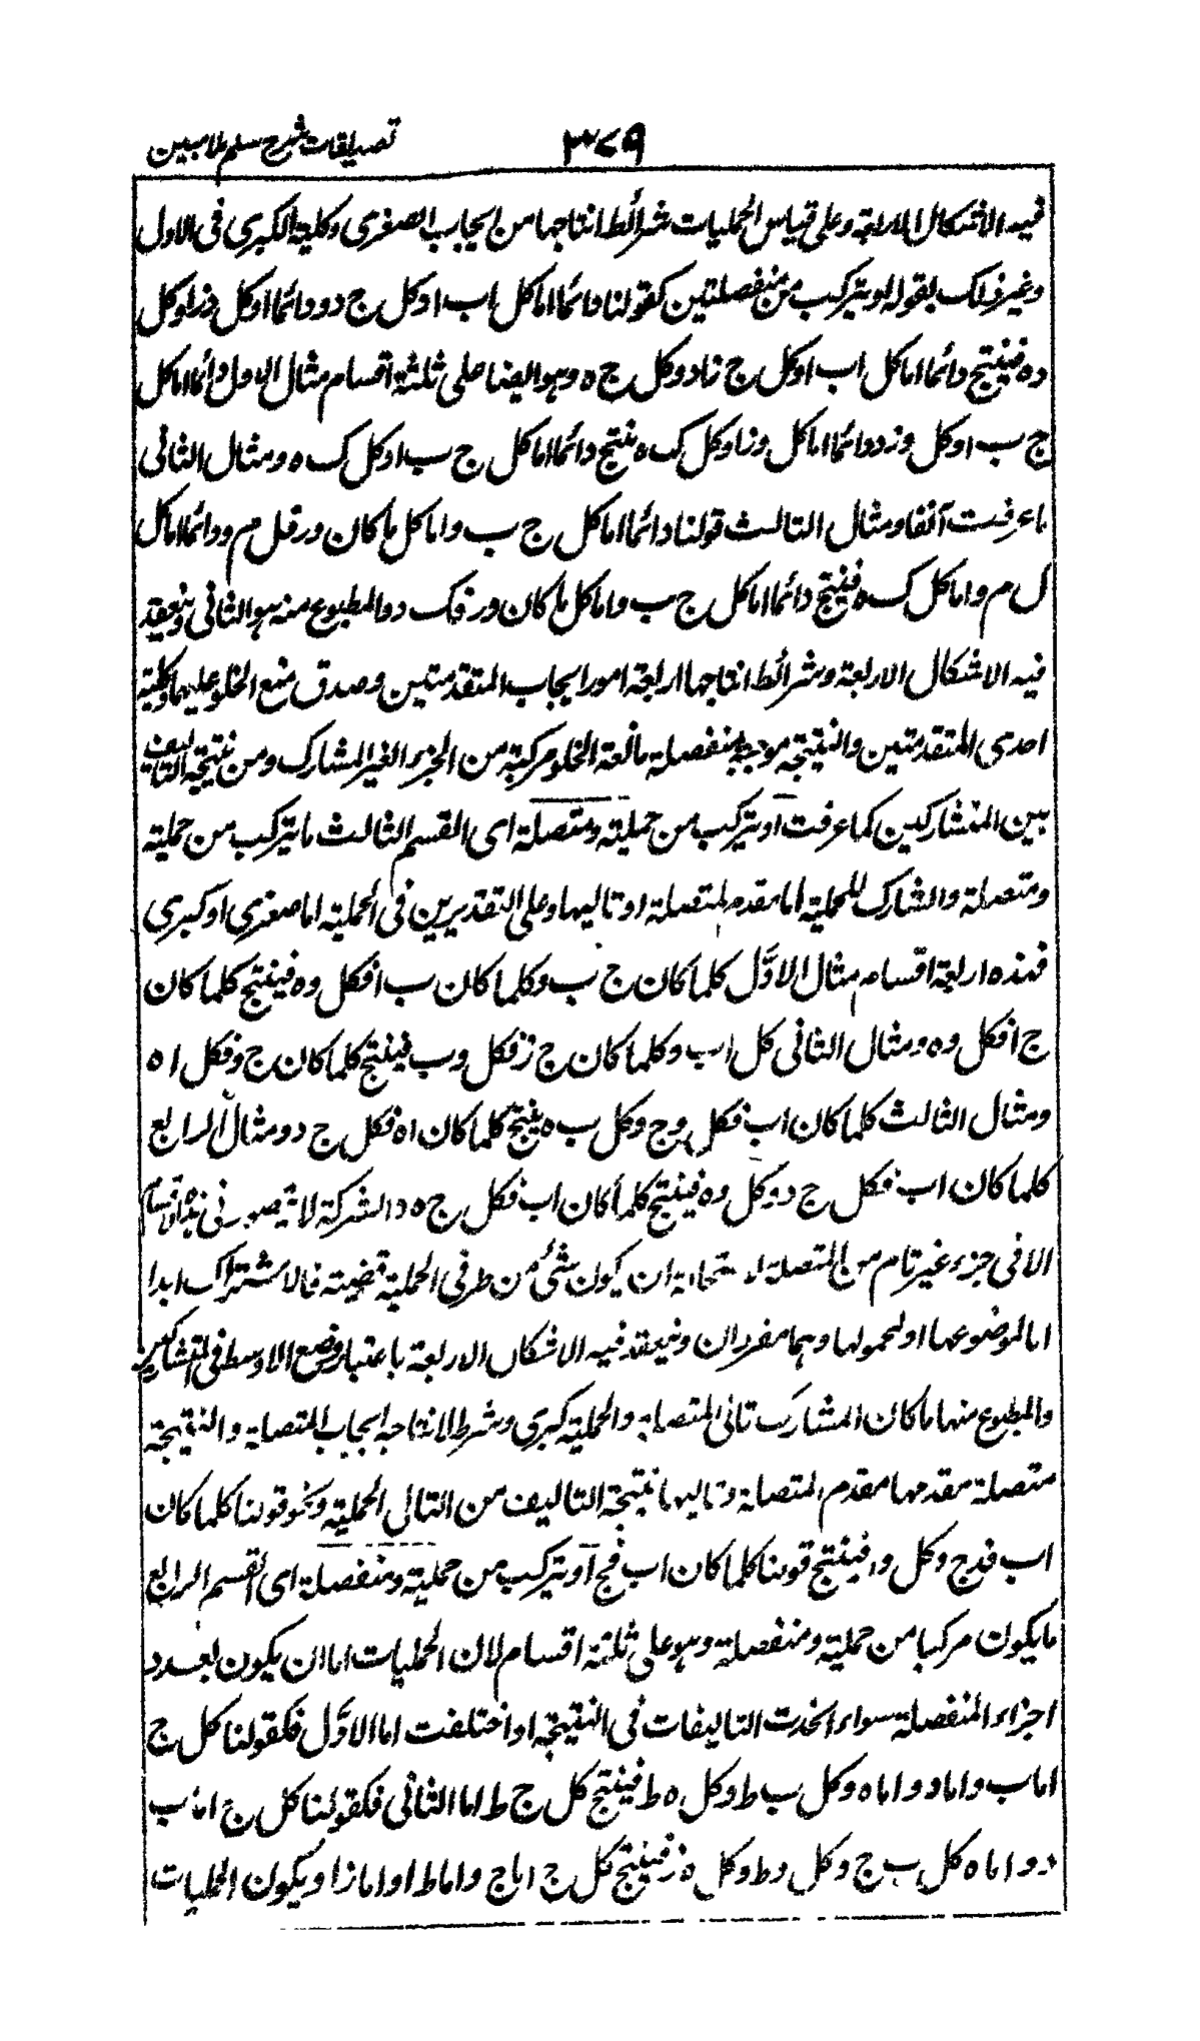 تصدیقات شرح سلم ملا مبین
۳۷۹
فیه الاشکال الاربعة وعلی قیاس الحملیات شرائط انتاجها من ایجاب الصغری وکلیة الکبری فی الاول
وغیر ذلک بقوله او یترکب من منفصلتین کقولنا دائما اما کل اب او کل ج د ودائما او کل دز او کل
ده فینتج دائما اما کل اب او کل ج ز او کل ج ه وهو ایضا علی ثلثة اقسام مثال الاول دائما اما کل
ج ب او کل وز ودائما اما کل وز او کل ک ه ینتج دائما اما کل ج ب او کل ک ه ومثال الثانی
ما عرفت آنفا ومثال الثالث قولنا دائما اما کل ج ب واما کل ما کان ورقل م ودائما اما کل
ل م واما کل ک ه فینتج دائما اما کل ج ب واما کل ما کان ورفک د والمطبوع منه هو الثانی وینعقد
فیه الاشکال الاربعة وشرائط انتاجها اربعة امور ایجاب المتقدمتین وصدق منع الخلو علیهما وکلیة
احدی المتقدمتین والنتیجة موجبة منفصلة مانعة الخلو مرکبة من الجزء الغیر المشارک ومن نتیجة التالیف
بین المتشارکین کما عرفت او یترکب من حملیة ومتصلة ای القسم الثالث ما یترکب من حملیة
ومتصلة والشارک للحملیة اما مقدم المتصلة او تالیها وعلی التقدیرین فی الحملیة اما صغری او کبری
فهذه اربعة اقسام مثال الاول کلما کان ج ب وکلما کان ب ا فکل وه فینتج کلما کان
ج ا فکل وه ومثال الثانی کل اب وکلما کان ج ز فکل وب فینتج کلما کان ج و فکل ا ه
ومثال الثالث کلما کان اب فکل وج وکل ب ه ینتج کلما کان اه فکل ج د ومثال الرابع
کلما کان اب فکل ج د وکل وه فینتج کلما کان اب فکل ج ه والشرکة لا یتصور فی هذه الاقسام
الا فی جزء غیر تام من المتصلة لاستحالة ان یکون شئ من طرفی الحملیة قضیة فالاشتراک ابدا
اما لموضوعها او لمحمولها وهما مفردان وینعقد فیه الاشکال الاربعة باعتبار وضع الاوسط فی المتشارکین
والمطبوع منها ما کان المشارک تالی المتصلة والحملیة کبری وشرط الانتاجه ایجاب المتصلة والنتیجة
متصلة مقدمها مقدم المتصلة وتالیها نتیجة التالیف من التالی الحملیة ونحو قولنا کلما کان
اب فدج وکل وا فینتج قولنا کلما کان اب فج آ او یترکب من حملیة ومنفصلة ای القسم الرابع
ما یکون مرکبا من حملیة ومنفصلة وهو علی ثلثة اقسام لان الحملیات اما ان یکون بعدد
اجزاء المنفصلة سواء اتحدت التالیفات فی النتیجة او اختلفت اما الاول فکقولنا کل ج
اما ب واما د واما ه وکل ب ط وکل ه ط فینتج کل ج ط اما الثانی فکقولنا کل ج اما ب
د و اما ه کل ب ج وکل د ط وکل ه ز فینتج کل ج اما ج واما ط او اما ز او یکون الحملیات